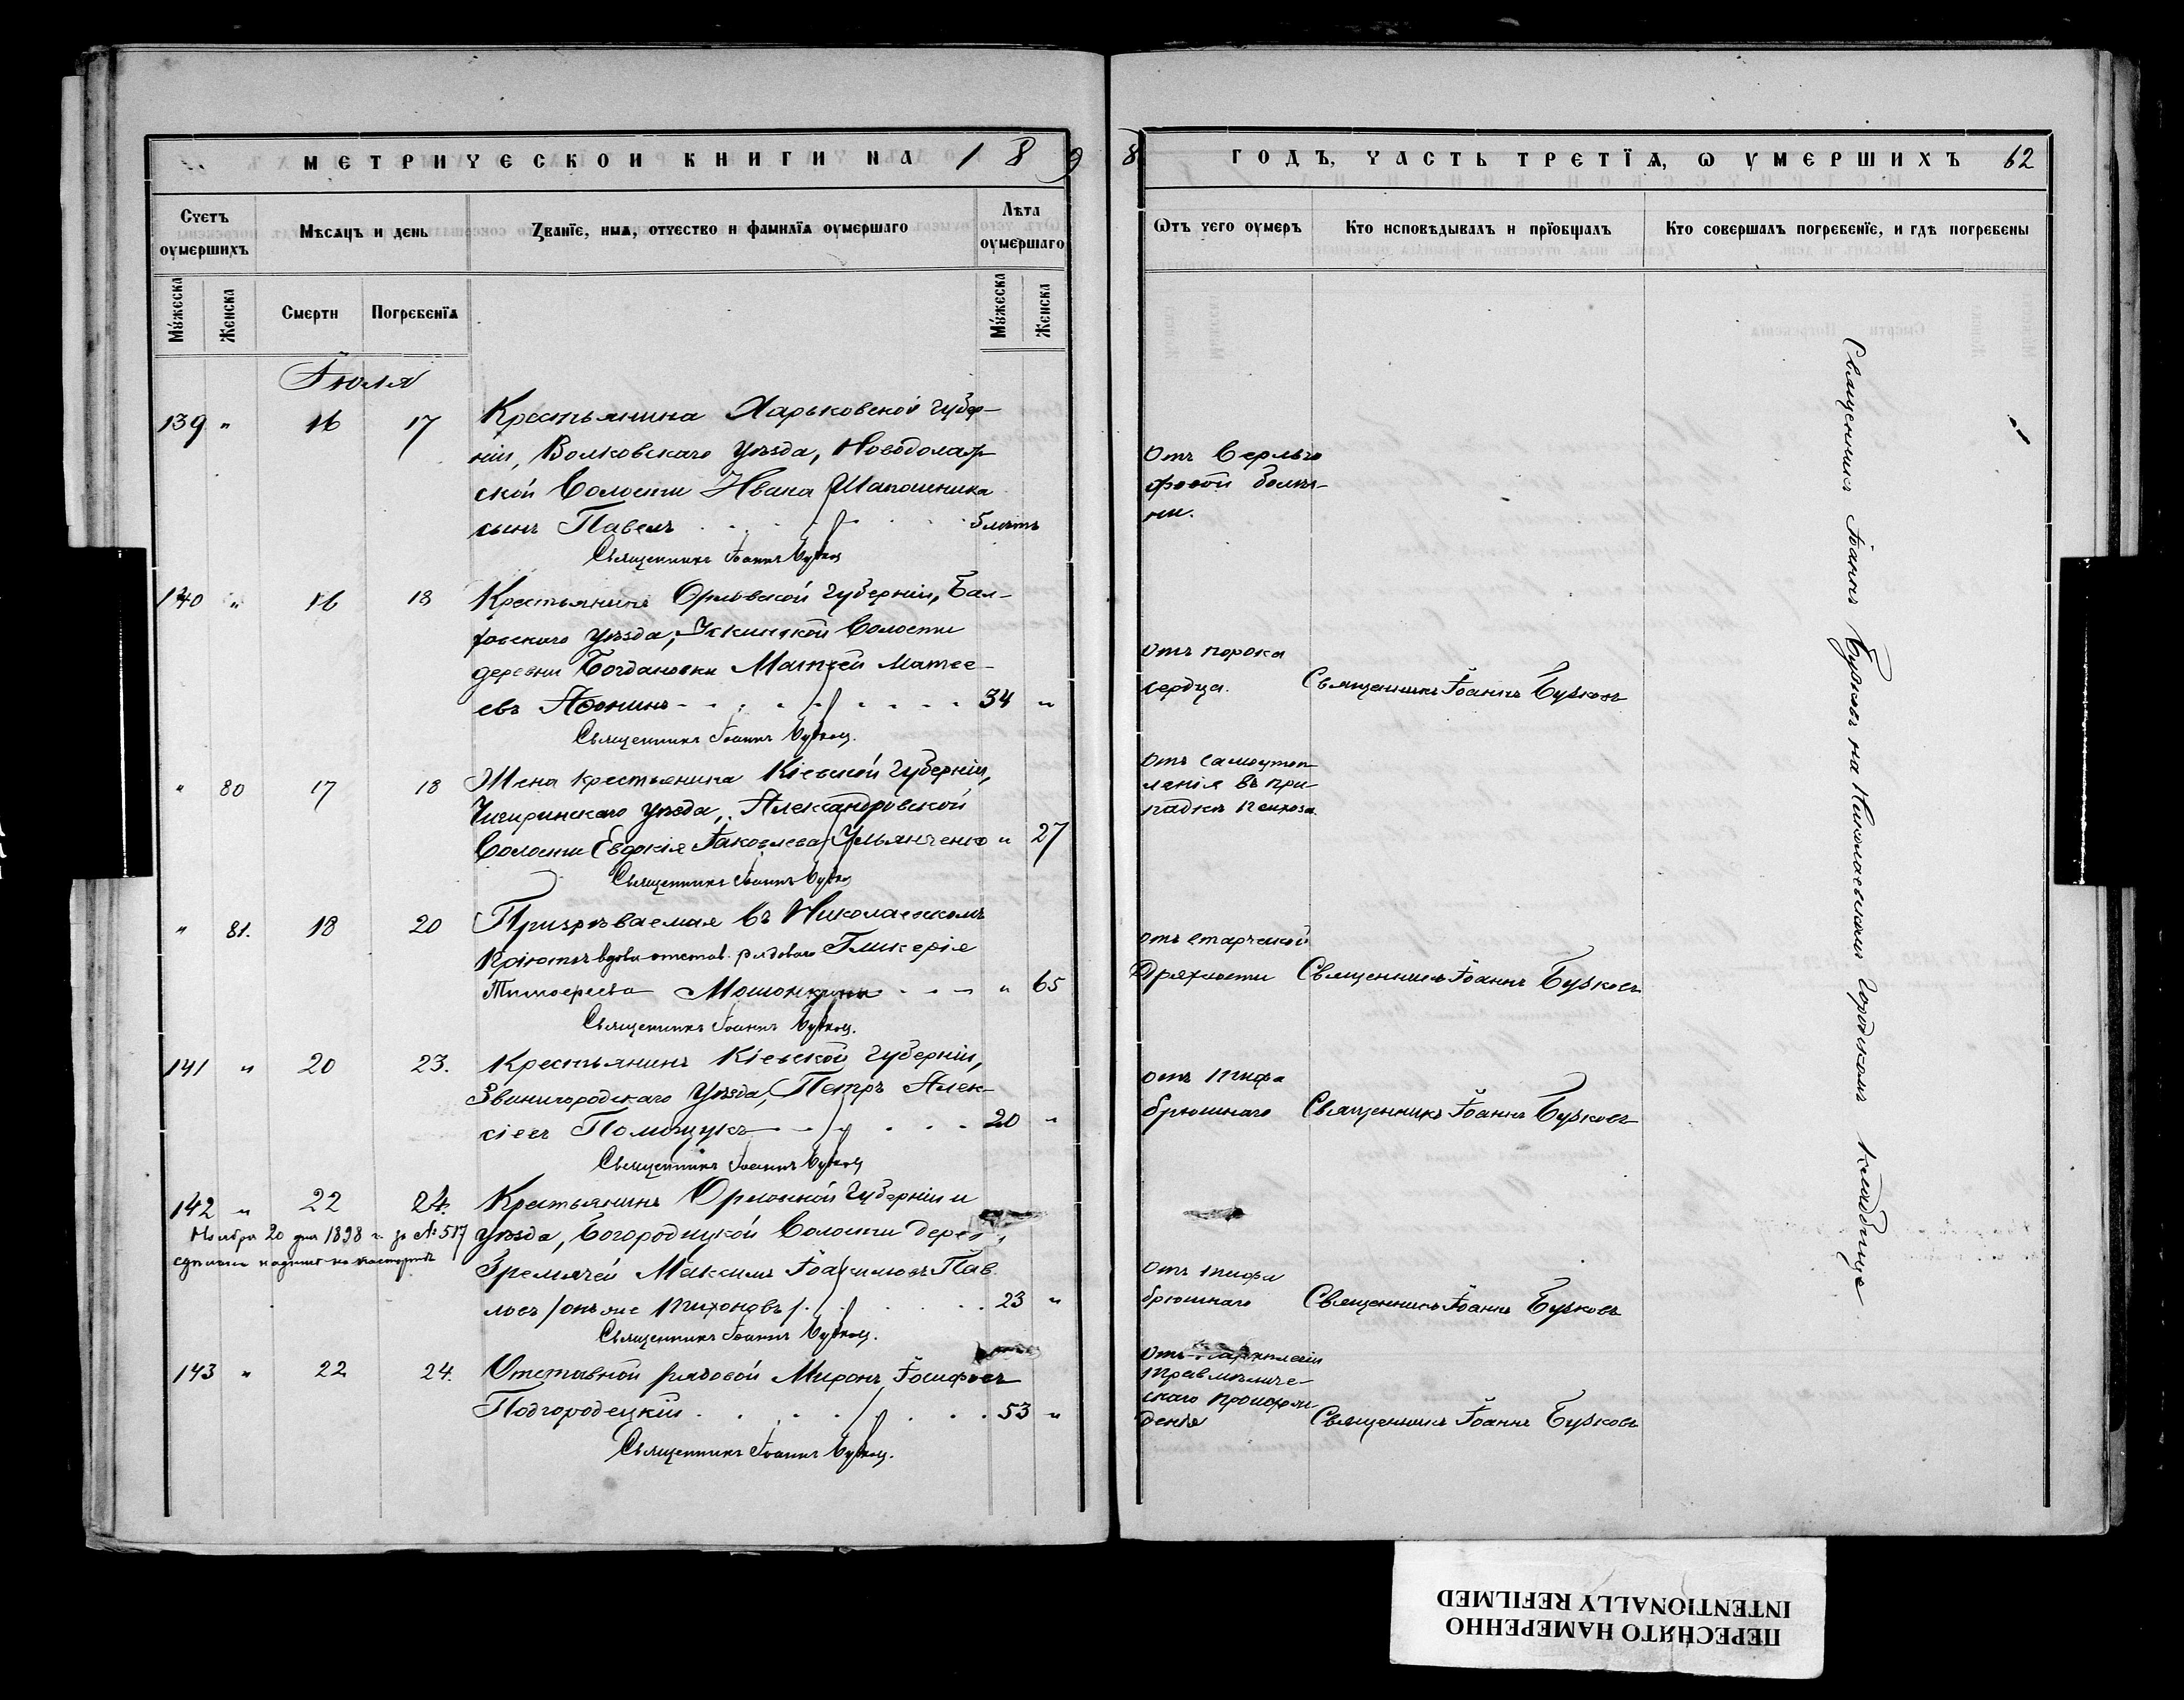 МЕТРИЧЕСКОЙ КНИГИ НА 1898 ГОДЪ, ЧАСТЬ ТРЕТЇѦ, Ѡ УМЕРШИХЪ 62
Счетъ оумершихъ
Мѣсѧцъ и день
Званїе, имѧ, отчество и фамилїѧ оумершаго
Лѣта оумершаго
Ѿтъ чего оумеръ
Кто исповѣдывалъ и прїобщалъ
Кто совершалъ погребенїе, и гдѣ погребены
Мужеска
Женска
Смерти
Погребенїѧ
Мужеска
Женска
Іюля
139 " 16 17 Крестьянина Харьковской губер-
ніи, Волковскаго уѣзда,
ской Волости Ивана Шапошника
сынъ Павелъ 5 лѣтъ
Священникъ Іоаннъ Бурковъ
140 " 16 18 Крестьянинъ Орловской губерніи,
уѣзда, Волости
деревни Богдановки Матѳей Матѳе-
евъ Аѳонинъ 34 "
Священникъ Іоаннъ Бурковъ.
отъ порока
сердца. Священникъ Іоаннъ Бурковъ
" 80 17 18 Жена крестьянина Кіевской губерніи,
Чигиринскаго уѣзда, Александровской
Волости Евдокія Іаковлева Ульянченко " 27
Священникъ Іоаннъ Бурковъ
отъ самоутоп-
ленія въ при-
падкѣ психоза
" 81. 18 20 Призрѣваемая въ Николаевскомъ
Пріютѣ вдова отстав. рядового Гликерія
Тимоѳеева " 65
Священникъ Іоаннъ Бурковъ.
отъ старческой
Дряхлости Священникъ Іоаннъ Бурковъ
141 " 20 23. Крестьянинъ Кіевской губерніи,
Звенигородскаго уѣзда, Петръ Алек-
сіевъ Полищукъ 20 "
Священникъ Іоаннъ Бурковъ
отъ тифа
брюшнаго Священникъ Іоаннъ Бурковъ
142 " 22 24. Крестьянинъ Орловской губерніи и
уѣзда, Богородицкой Волости
Гремячей Максимъ Іоакимовъ Пав-
ловъ /онъ же Тихоновъ/. 23 "
Священникъ Іоаннъ Бурковъ.
Ноября 20 дня 1898 г. за № 517
отъ тифа
брюшнаго Священникъ Іоаннъ Бурковъ
143 " 22 24. Отставной рядовой Миронъ Іосифовъ
Подгородецкій 53 "
Священникъ Іоаннъ Бурковъ.
Отъ
скаго происхож-
денія Священникъ Іоаннъ Бурковъ
Священникъ Іоаннъ Бурковъ на Николаевскомъ городскомъ кладбищѣ
ПЕРЕСНЯТО НАМЕРЕННО
INTENTIONALLY REFILMED